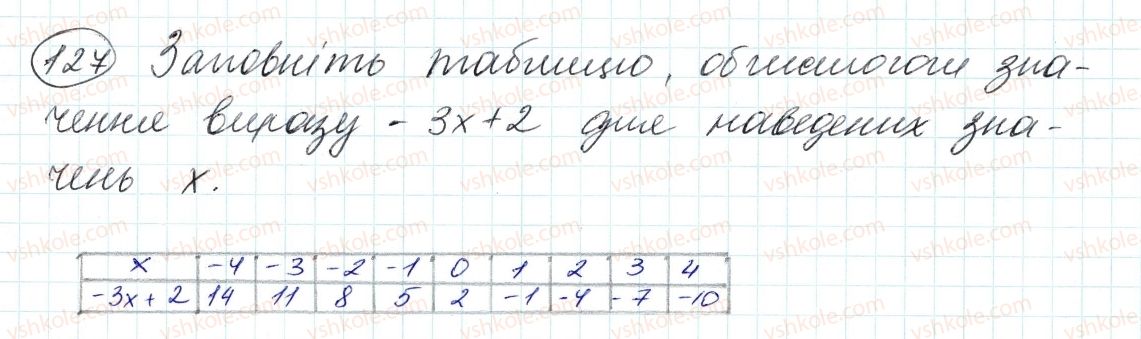 127 Заповніть таблицю, обчисливши зна-
чення виразу - 3x + 2 для наведених зна-
чень x.
x -4 -3 -2 -1 0 1 2 3 4
-3x + 2 14 11 8 5 2 -1 -4 -7 -10